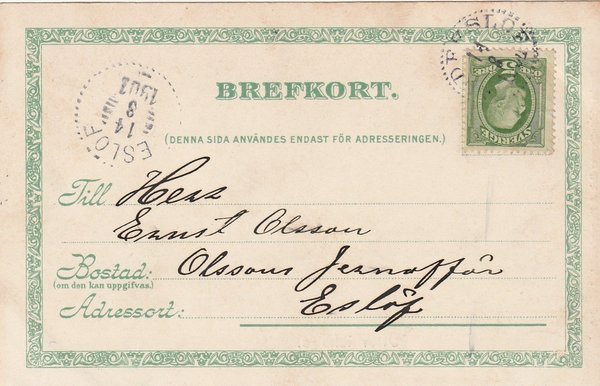 BREFKORT.
(DENNA SIDA ANVÄNDES ENDAST FÖR ADRESSERINGEN.)
ESLÖF
14
8
1902
ESLÖF
14
8
SVERIGE
Till Herr
Ernst Olsson
Bostad: Olssons Jernaffär
(om den kan uppgifvas.)
Eslöf
Adressort: